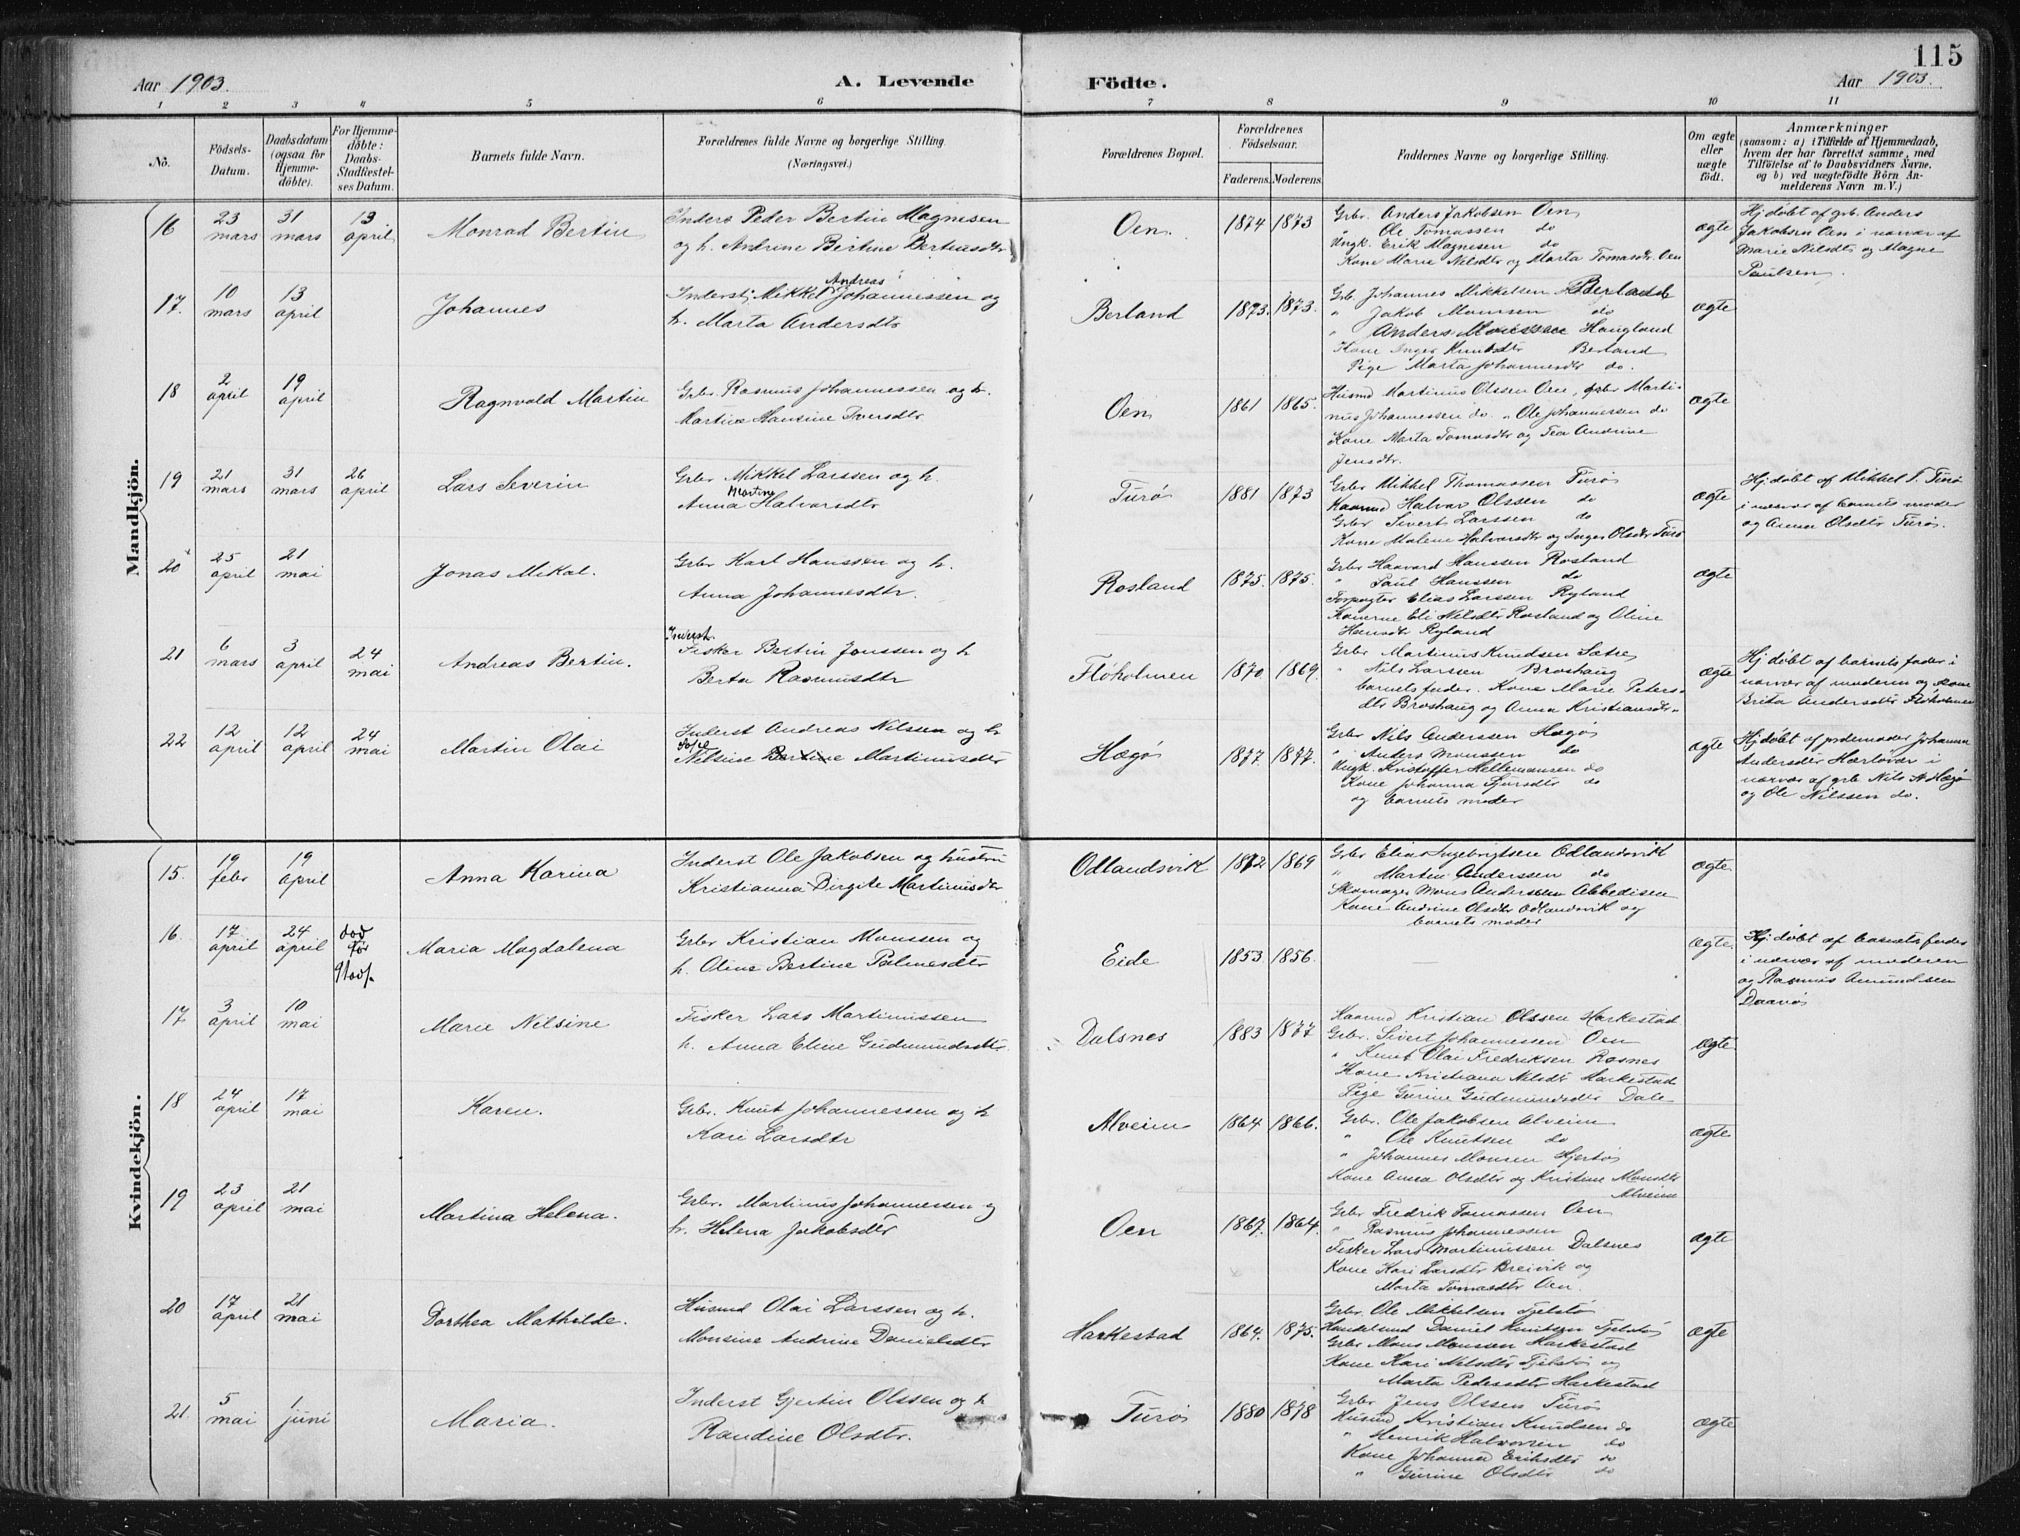 115
Aar 1903.
A. Levende
Födte.
Aar 1903.
1 2 3 4 5 6 7 8 9 10 11
No.
Födsels-
Datum.
Daabsdatum
(ogsaa for
Hjemme-
döbte).
For Hjemme-
döbte:
Daabs-
Stadfæstel-
ses Datum.
Barnets fulde Navn.
Forældrenes fulde Navne og borgerlige Stilling.
(Næringsvei.)
Forældrenes Bopæl.
Forældrenes
Födselsaar.
Faderens. Moderens.
Faddernes Navne og borgerlige Stilling.
Om ægte
eller
uægte
födt.
Anmærkninger
(saasom: a) i Tilfælde af Hjemmedaab,
hvem der har forrettet samme, med
Tilföielse af to Daabsvidners Navne,
og b) ved uægtefödte Börn An-
melderens Navn m. V.)
Mandkjön.
16
23
mars
31
mars
13
april
Monrad Bertin
Inders Peder Bertin Magnesen
og h. Andrine Bertine Bertinsdtr
Oen.
1874 1873
Grbr. Anders Jakobsen Oen
" Ole Tomassen do
Ungk. Erik Magnesen do
Kone Marie Nilsdtr og Marta Tomasdtr. Oen
ægte
Hj døbt af grb. Anders
Jakobsen Oen i nærvær af
Marie Nilsdtr og Magne
Paulsen.
17.
10
mars
13
april
Johannes
Andreas
Inderst Mikkel Johannessen og
h. Marta Andersdtr
Berland
1873. 1873.
Grb. Johannes Mikkelsen Berland
" Jakob Monsen do
" Anders Monssen Haugland
Kone Inger Knutsdtr Berland
Pige Marta Johannesdtr do.
ægte
18
2
april
19
april
Ragnvald Martin
Grbr. Rasmus Johannessen og h.
Martine Hansine Iversdtr
Oen
1861 1865.
Husmd Martinus Olssen Oen, grbr Marti-
nus Johannessen do. " Ole Johannessen do
Kone Marta Tomasdtr og Tea Andrine
Jensdtr.
ægte
19
21
mars
31
mars
26
april
Lars Severin
Grbr Mikkel Larssen og h.
Martine
Anna Halvarsdtr
Turø
1881 1873
Grbr Mikkel Thomassen Turø
Kaarmd Halvar Olssen do
Grbr Sivert Larssen do
Kone Malene Halvarsdtr og Inger Olsdtr Turø
ægte
Hj døbt af Mikkel T. Turø
i nærvær af barnets moder
og Anna Olsdtr Turø.
20
25
april
21
mai
Jonas Mikal.
Grbr Karl Hanssen og h.
Anna Johannesdtr.
Rosland
1875. 1875.
Grbr Haavard Hanssen Rosland
" Paul Hanssen do
Forpagter Elias Larssen Ryland
Konerne Eli Nilsdtr Rosland og Oline
Hansdtr Ryland
ægte
21
6
mars
3
april
24
mai
Andreas Bertin.
Inderst.
Fisker Bertin Jonssen og h
Berta Rasmusdtr
Fløholmen
1870. 1869.
Grbr Martinus Knudsen Sætre
" Nils Larssen Broshaug
barnets fader. Kone Marie Peters-
dtr Broshaug og Anna Kristiansdtr "
ægte
Hj døbt af barnets fader i
nærvær af moderen og kone
Brita Andersdtr Fløholmen
22
12
april
12
april
24
mai
Martin Olai
Inderst Andreas Nilsen og h
Sofie
Nilsine Bertine Martinusdtr
Hægø
1877. 1877.
Grbr Nils Anderssen Hægø
" Anders Monssen do
Ungk. Kristoffer Hellemansen do
Kone Johanna Sjursdtr do
og barnets moder
ægte
Hj døbt af jordemoder Johanna
Andersdtr Hærløvær i
nærvær af grb Nils A Hægø
og Ole Nilssen do.
Kvindekjön.
15.
19
febr
19
april
Anna Karina
Inderst Ole Jakobsen og hustru
Kristianna Birgite Martinusdtr
Odlandsvik
1872. 1869
Grbr Elias Ingebrigtsen Odlandsvik
" Martin Anderssen do
Skomager Mons Anderssen Abbedissen
Kone Andrine Olsdtr Odlandsvik og
barnets moder
ægte
16.
17
april
24
april
død
før
stadf.
Maria Magdalena
Grbr Kristian Monssen og
h. Oline Bertine Palmesdtr
Eide
1853 1856.
ægte.
Hj døbt af barnets fader
i nærvær af moderen
og Rasmus Amundsen
Daarø
17
3
april
10
mai
Marie Nilsine
Fisker Lars Martinussen
h. Anna Eline Gudmundsdtr
Dalsnes
1883 1877
Kaarmd Kristian Olssen Harkestad
Grbr. Sivert Johannessen Oen
" Knut Olai Fredriksen Rosnes
Kone Kristiana Nilsdtr Harkestad
Pige Gurine Gudmundsdtr Dale
ægte
18
24
april
17
mai
Karen.
Grbr. Knut Johannessen og h
Kari Larsdtr
Alveim
1864 1866.
Grbr. Ole Jakobsen Alveim
" Ole Knutsen do
" Johannes Monsen Hjertø
Kone Anna Olsdtr og Kristine Monsdtr
Alveim
ægte
19
23
april
21
mai
Martina Helena.
Grbr. Martinus Johannessen og
h. Helena Jakobsdtr
Oen
1867. 1864.
Grbr Fredrik Tomassen Oen
" Rasmus Johannessen
Fisker Lars Martinussen Dalsnes
Kone Kari Larsdtr Breivik og
Marta Tomasdtr Oen.
ægte
20
17
april
21
mai
Dorthea Mathilde.
Husmd Olai Larssen og h.
Monsine Andrine Danielsdtr
Harkestad
1864. 1875.
Grbr. Ole Mikkelsen Tjelstø
Handelsmd Daniel Knutsen Tjelstø
Grbr Mons Monssen Harkestad
Kone Kari Nilsdtr Tjelstø og
Marta Pedersdtr Harkestad
ægte
21.
5
mai
1
juni
Maria.
Inderst Gjertin Olssen og h
Randine Olsdtr.
Turø
1880 1878
Grbr Jens Olssen Turø
Husmd Kristian Knudsen do
" Henrik Halvorsen do
Kone Johanna Eriksdtr do
" Gurine Olsdtr do
ægte